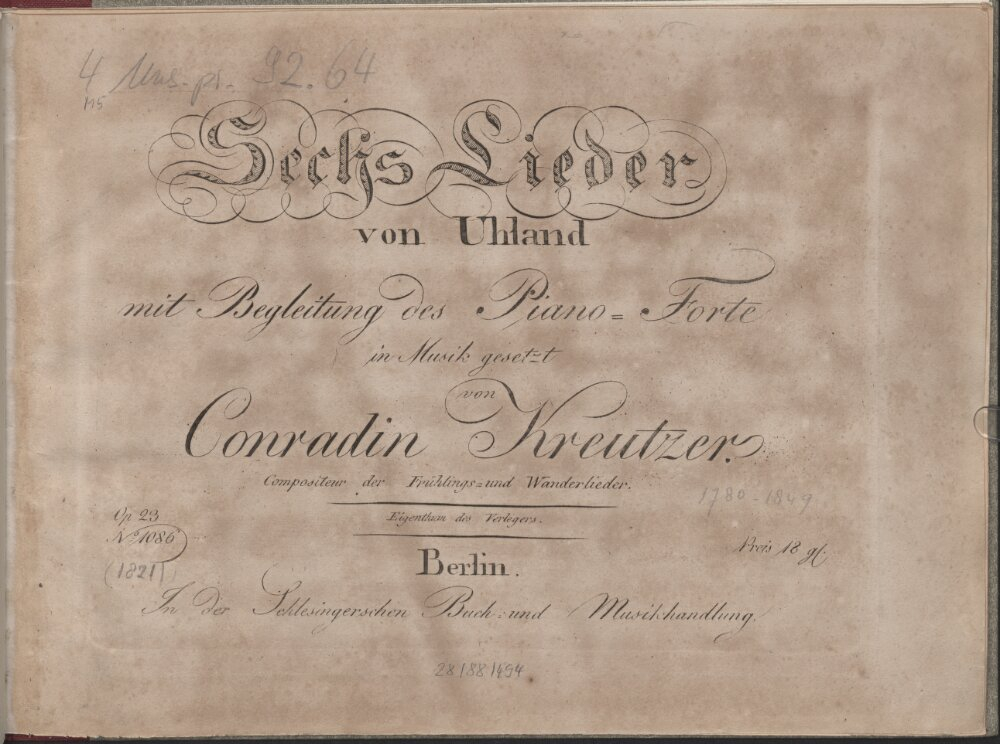 4 Mus. pr. 92.64
Sechs Lieder
von Uhland
mit Begleitung des Piano=Forte
in Musik gesetzt
von
Conradin Kreutzer.
Compositeur der Frühlings=und Wanderlieder.
1780-1849
Eigenthum des Verlegers.
Op 23
No 1086
Preis 18 gl.
(1821)
Berlin.
In der Schlesingerschen Buch=und Musikhandlung.
28/88/494